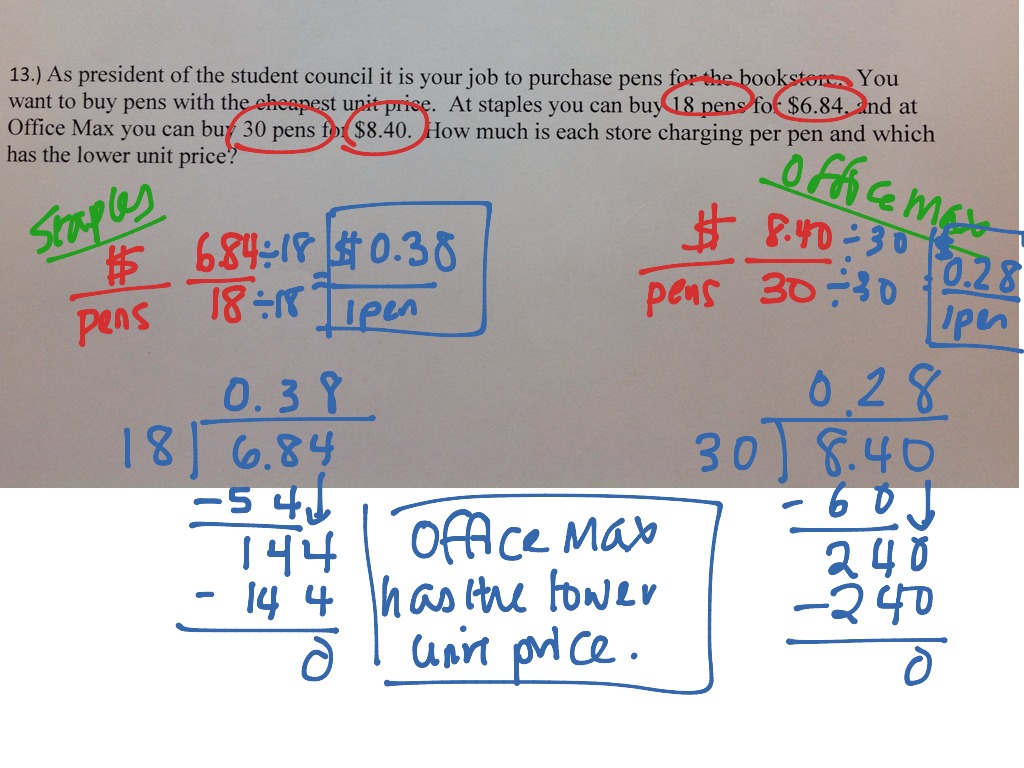 13.) As president of the student council it is your job to purchase pens for the bookstore. You
want to buy pens with the cheapest unit price. At staples you can buy 18 pens for $6.84, and at
Office Max you can buy 30 pens for $8.40. How much is each store charging per pen and which
has the lower unit price?
Staples
$ 6.84 ÷ 18 = $ 0.38
pens 18 ÷ 18 1 pen
Office Max
$ 8.40 ÷ 30 = $ 0.28
pens 30 ÷ 30 1 pen
0.38
18 6.84
- 5 4 ↓
144
- 144
0
0.28
30 8.40
- 6 0 ↓
240
- 240
0
Office Max
has the lower
unit price.